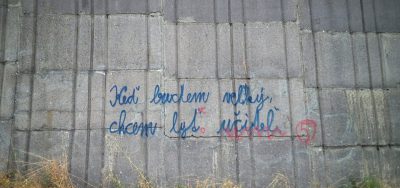 Keď budem veľký,
chcem byť učiteľ.
5